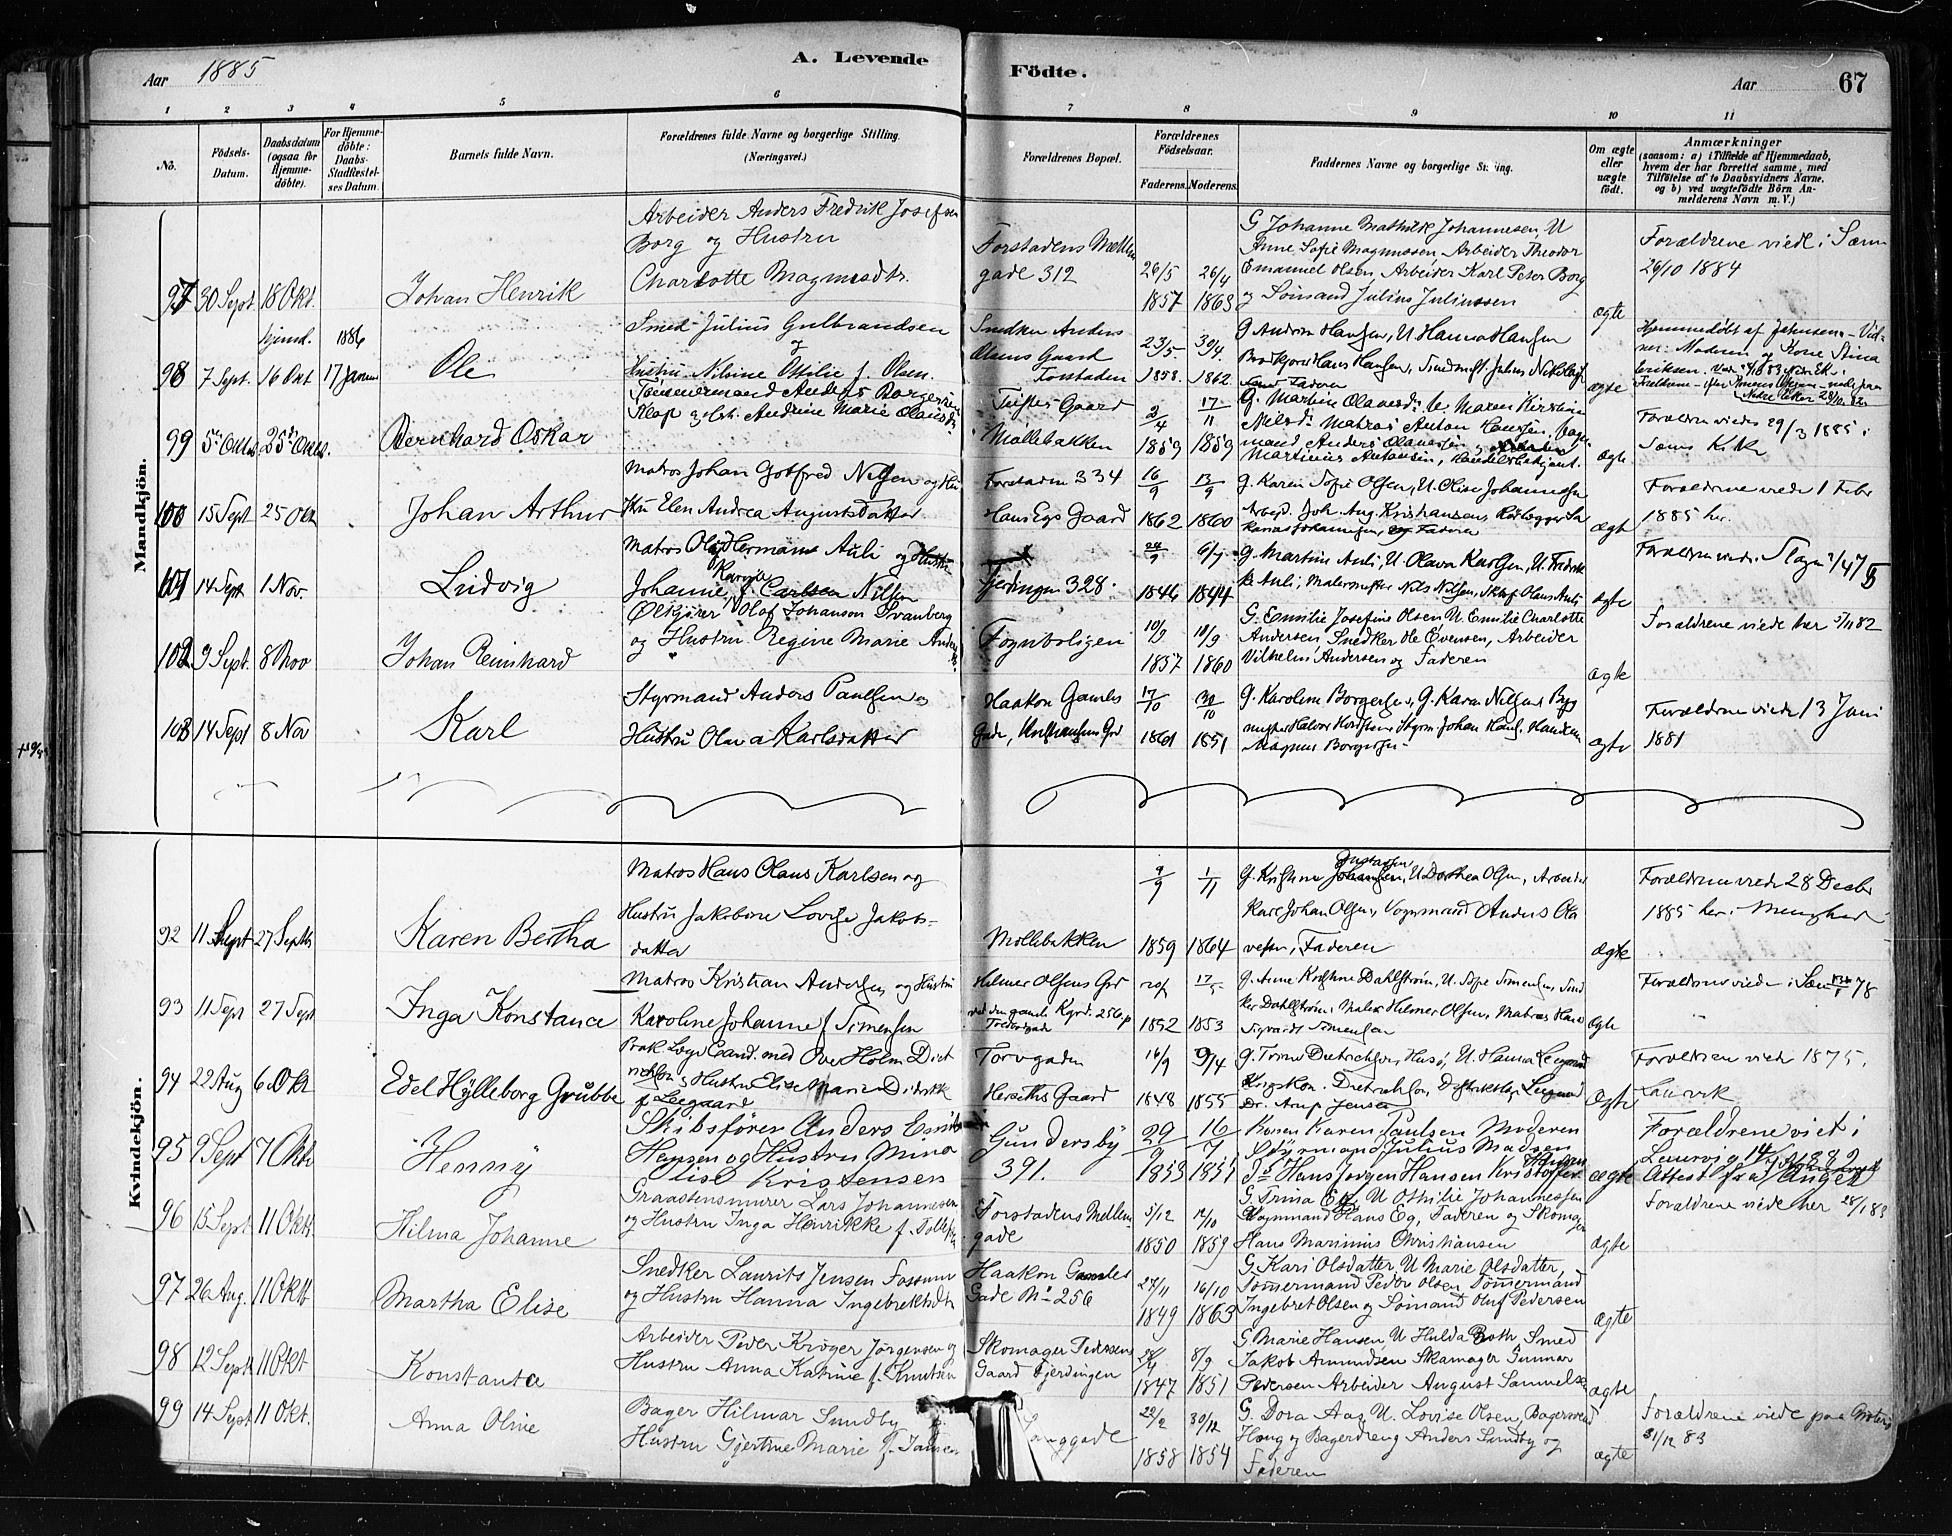 Aar 1885 A. Levende Födte. Aar 67
1 2 3 4 5 6 7 8 9 10 11
No.
Födsels-Datum.
Daabsdatum (ogsaa for Hjemme-döbte).
For Hjemme-döbte: Daabs-Stadfæstel-ses Datum.
Barnets fulde Navn.
Forældrenes fulde Navne og borgerlige Stilling. (Næringsvei.)
Forældrenes Bopæl.
Forældrenes Födselsaar.
Faderens. Moderens.
Faddernes Navne og borgerlige Stilling.
Om ægte eller uægte födt.
Anmærkninger
(saasom: a) i Tilfælde af Hjemmedaab,
hvem der har forrettet samme, med
Tilföielse af to Daabsvidners Navne,
og b) ved uægtefödte Börn An-
melderens Navn m. V.)
Mandkjön.
97 30 Sept. 18 Okt. Johan Henrik
Arbeider Anders Fredrik Josefsen
Borg og Hustru
Charlotte Magnusdtr.
Forstadens Mellem
gade 312
26/5 1857 26/4 1863
G Johanne Mathilde Johannesen, U
Anne Sofie Magnussen, Arbeider Theodor
Emanuel Olsen, Arbeider Karl Peter Borg
og Sömand Julius Juliussen
ægte
Forældrene viede i Sæm
26/10 1884
98 7 Sept. hjemd. 16 Okt 1886 17 Januar Ole
Smed Julius Gulbrandsen
og
Hustru Nilsine Ottilie f. Olsen.
Snedker Anders
Olsens Gaard
Forstaden
23/5. 1858. 30/4. 1862.
G Andrea Hansen, U Hanna Hansen
samt Faderen
ægte
Hjemmedøbt af Jensen. - Vid-
ner: Moderen og Kone Stina
Eriksen.
99 5te Oktob 25de Oktob. Bernhard Oskar
Tömmermand Anders Borgersen
Klop og Hst. Andrine Marie Olausdtr
Tuftes Gaard
Möllebakken
2/4 1859 17/11 1859
G. Martine Olavesdr. U. Maren Kirstine
Nilsdr. Matros Anton Hansen,
mand Anders Olavessen,
Martinius Antonsen, Handelsbetjent.
ægte
Forældrene viedes 29/3 1885 i
Sæms Kirke
100 15 Sept 25 Okt Johan Arthur
Matros Johan Gotfred Nilsen og Hu
stru Elen Andrea Augustsdatter
Forstaden 334
Hans Egs Gaard
16/9 1862 13/9 1860
G. Karen Sofie Olsen, U. Olise Johannesen
Arbejd. Joh. Aug. Kristiansen,
Faderen
ægte
Forældrene viede 1 Febr
1885 her.
101 14 Sept 1 Nov. Ludvig
Matros Ole Hermann Auli og Hustru
Johanne Karoline f. Carlsen Nilsen
Fjerdingen 328.
24/9 1846 6/7 1844
G. Martine Auli, U. Olava Karlsen, U. Fredrik
ke Auli, Malermester Nils Nilsen, Olaus Auli
ægte
Forældrene viede i Slagen
102 9 Sept. 8 Nov Johan Reinhard
Ölkjörer Olof Johanson Svanberg
og Hustru Regine Marie Anders
dtr.
Fognboligen
10/9 1857 18/9 1860
G. Emilie Josefine Olsen U. Emilie Charlotte
Andersen, Snedker Ole Evensen, Arbeider
Vilhelm Andersen og Faderen
ægte
Forældrene viede her 5/11 82
103 14 Sept 8 Nov Karl
Styrmand Anders Paulsen og
Hustru Olava Karlsdatter
Haakon Gamles
Gade,
17/10 1861 30/10 1851
G. Karoline Borgersen, G. Karen Nilsen, Byg
mester Halvor Styrm Johan Hansen,
Magnus Borgersen
ægte
Forældrene viede 13 Juni
1881
Kvindekjön.
92 11 Sept 27 Septb Karen Bertha
Matros Hans Olaus Karlsen og
Hustru Jakobine Lovise Jakobs-
datter
Möllebakken
9/9 1859 1/11 1864
G. Kristine Johansen Gustavsen, U Dorthea Olsen, Arbeider
Karl Johan Olsen, Vognmand Anders Ola
vesen, Faderen
ægte
Forældrene viede 28 Decbr
1885 her i Menighed
93 11 Sept 27 Sept Inga Konstance
Matros Kristian Andersen og Hustru
Karoline Johanne f Simensen
Helmer Olsens Grd
ved den gamle Kgrd. 256
1852 17/5 1853
G. Anne Kristine Dahlström, U. Sofie Simensen, Sned
ker Dahlström, Maler Helmer Olsen, Matros Hans
Sigvardt Simensen
ægte
Forældrene viede i Sæm 78
94 22 Aug 6 Okt Edel Hylleborg Grubbe
Prak Læge Cand. med Ove Holm Diet
richson og Hustru Elise Marie Didrikke
f. Leegaard
Torvgaden
Herseths Gaard
16/9 1848 9/4 1855
G. Trine Dietrichson, Husö, U. Hanna Leegaard
Krigskom. Dietrichson, Leegaard
Dr. Arup Jensen
ægte
Forældren viede 1875.
Laurvik
95 9 Sept 7 Oktb Henny
Skibsförer Anders Emil
Hansen og Hustru Mina
Elise Kristensen
Gundersby
391.
29/9 1853 16/7 1857
Konen Karen Paulsen Moderen
Styrmand Julius Madsen
Do Hans Jörgen Hansen Kristoffer Hansen
ægte
Forældrene viet i
Laurvig
Attest fra
96 15 Sept 11 Oktb. Hilma Johanne
Graastensmurer Lars Johannesen
og Hustru Inga Henrikke f. Tollefsen
Forstadens Mellem
gade
5/12 1850 12/10 1859
G. Trina Eg, U Othilie Johannessen
Vognmand Hans Eg, Faderen og Skomager
Hans Marinius Christiansen
ægte
Forældrene viede her 28/1 83
97 26 Aug. 11 Oktb. Martha Elise
Snedker Laurits Jensen Fossum
og Hustru Hanna Ingebrektsdtr
Haakon Gamles
Gade No 256
27/11 1849 16/10 1863
G. Kari Olsdatter, U Marie Olsdatter,
Tömmermand Peder Olsen, Tömmermand
Ingebret Olsen og Sömand Oluf Pedersen
ægte
98 12 Septb 11 Okt Konstanta
Arbeider Peder Kröger Jörgensen og
Hustru Anna Katrine f. Knutsen
Skomager Pedersens
Gaard Fjerdingen
28/4 1847 8/9 1851
G Marie Hansen, U Hulda Both, Smed
Jakob Amundsen Skomager Gunnar
Pedersen Arbeider August Samuelsen
ægte
99 14 Sept 11 Okt. Anna Oline
Bager Hilmar Sundby og
Hustru Gjertine Marie f. Jansen
Langgade
22/2 1858 30/12 1854
G. Dora Aas, U. Lovise Olsen, Bagersvend
Haug og Bagerdreng Anders Sundby og
Faderen
ægte
Forældrene viede paa Nöterö
31/12 83